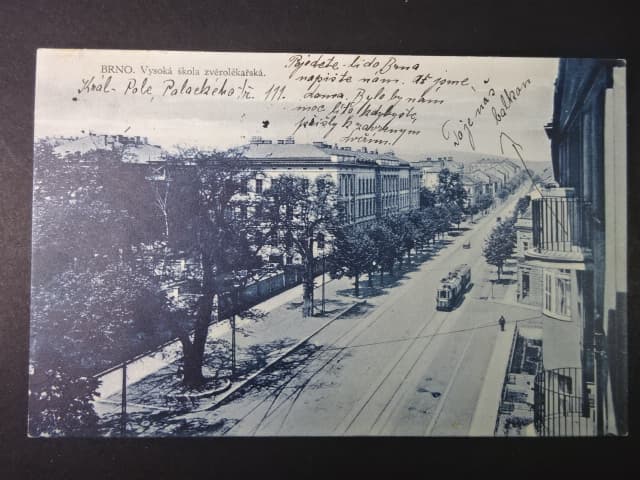 BRNO. Vysoká škola zvěrolékařská.
Král. Pole, Palackého tř. 111.
Pojedete-li do Brna
napište nám. ať jsme
doma. Bylo by nám
moc líto kdybyste
přišly k zavřeným
dveřím.
To je náš
balkon